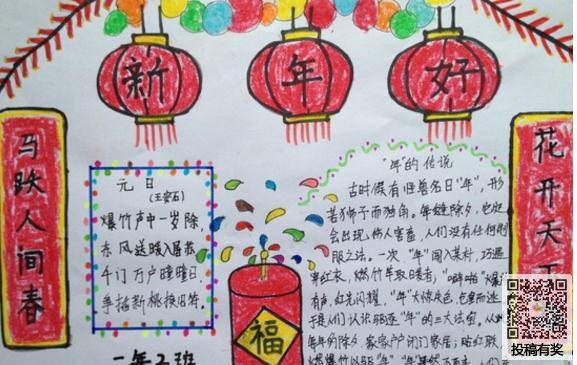 新年好
马跃人间春
花开天下
元日
(王安石)
爆竹声中一岁除,
东风送暖入屠苏
千门万户曈曈日
手把新桃换旧符
福
"年"的传说
古时候有怪兽名曰"年",形
若狮子而独角。每缝除夕,
会出现伤人害畜,人们没有任何
服之法。一次"年"闯入某村,巧遇
穿红衣,燃竹竿取暖者,"噼啪"爆
有声,红光闪耀,"年"大惊失色,
于是人们认识驱逐"年"的三大法宝。从
每年的除夕,家家户闭门
燃爆竹以驱"年"
二年2班
投稿有奖